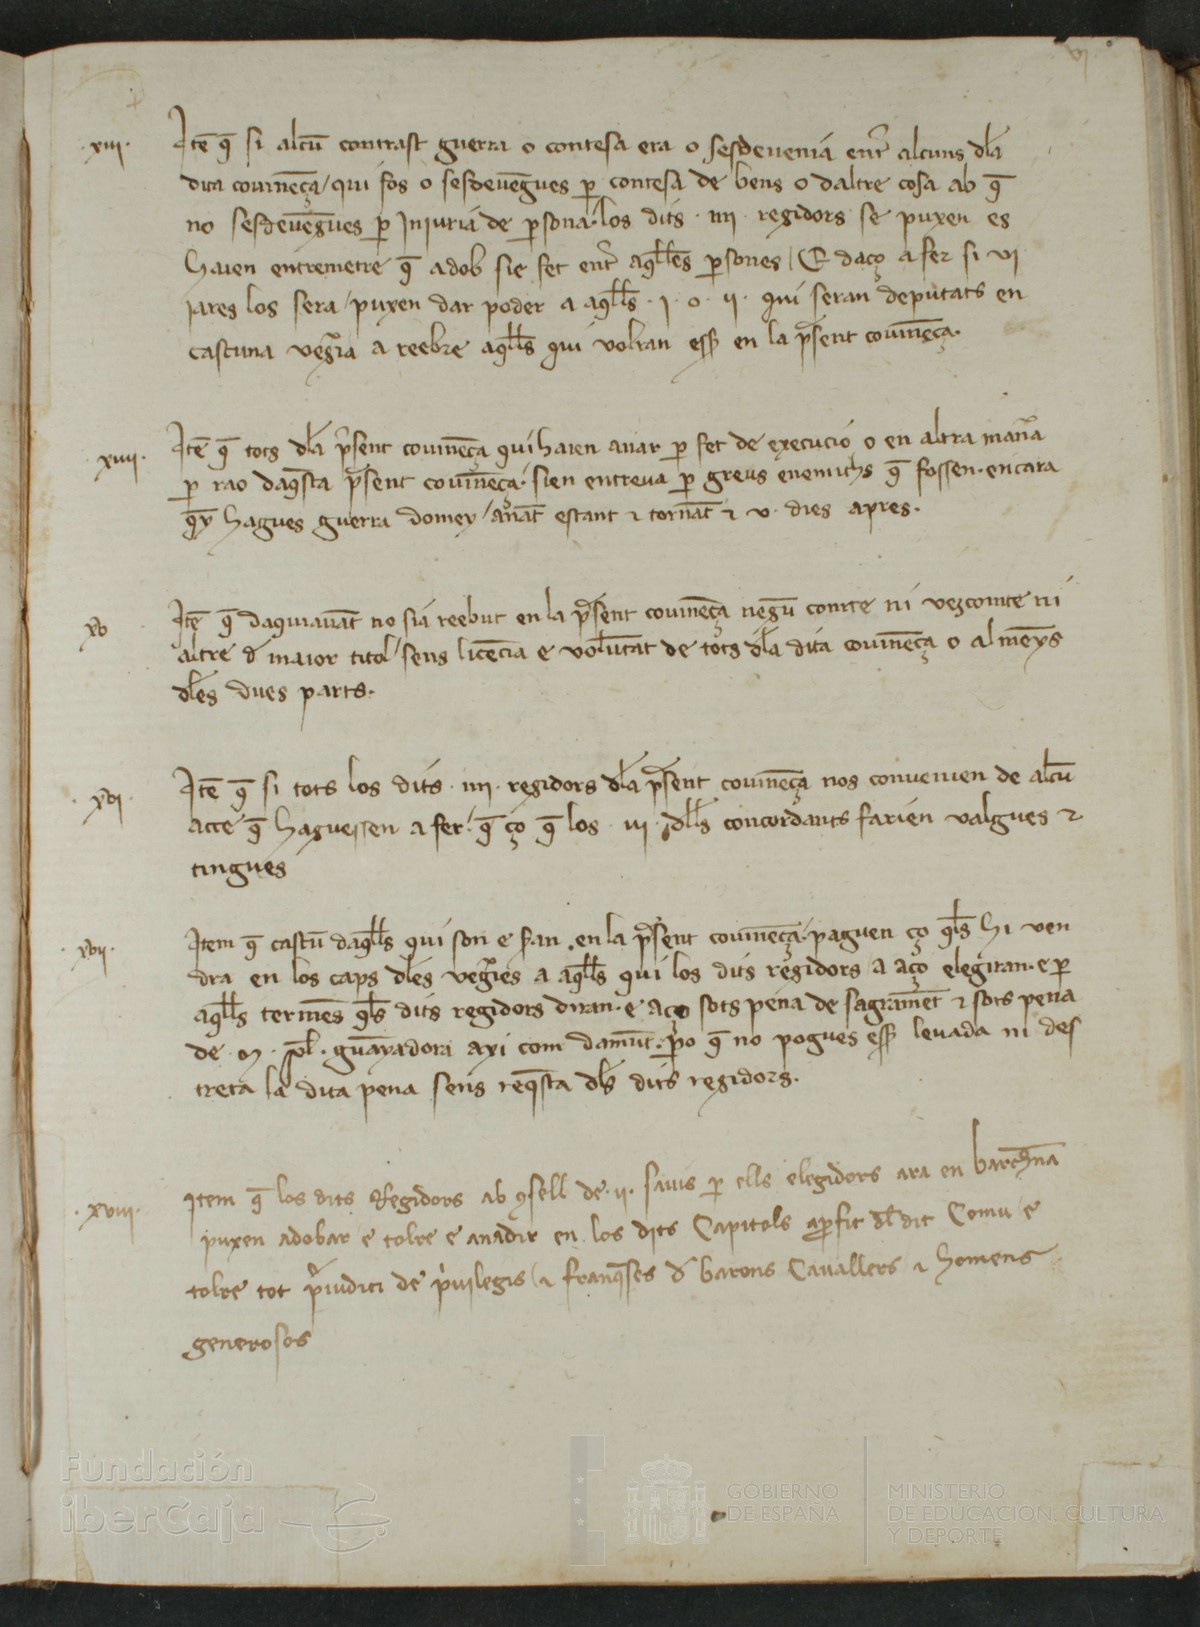 vj
·xiii· Itē q̄ si alcū contrast guerra o contesa era o sesdeuenia entͬ alcuns dl̄a
dita couinēça / qui fos o sesdeuēgues p̄ contesa de bens o daltre cosa ab q̄
no sesdeuēgues p̄ Injuria de p̄sona· los dits · iiii · regidors se puxen es
haien entremetre q̄ adob sie fet entͬ aq̄lles p̄sones / E daço a fer si vi
iares los sera / puxen dar poder a aq̄lls · i · o · ii · qui seran deputats en
cascuna veg̃ia a reebre aq̄lls qui volran eēr en la p̄sent couinēça·
xiiii· Itē q̄ tots dl̄a p̄sent couinēça qui haien anar p̄ fet de execucio o en altra man̄a
p̄ rao daq̄sta p̄sent couinēça· sien entreua p̄ greus enemichs q̄ fossen· encara
q̄y hagues guerra domey / anāt estant ⁊ tornāt ⁊ v· dies apres·
xv Itē q̄ daquiauāt no sia reebut en la p̄sent couinēça negū comte ni vezcomte ni
altre d̄ maior titol sens licēcia e volūtat de tots dl̄a dita couinēça o almēys
dl̄es dues parts·
·xvi· Itē q̄ si tots los dits · iiii · regidors dl̄a p̄sent couinēça nos conuenien de alcū
acte q̄ haguessen a fer· q̄ ço q̄ los · iii · dl̄ls concordants farien valgues ⁊
tingues
·xvii· Item q̄ cascū daq̄lls qui son e s̄ran en la p̄sent couinēça· paguen ço q̄ls hi ven
dra en los caps dl̄es veg̃ies a aq̄lls qui los dits regidors / a aço elegiran· e p̄
aq̄lls termēs q̄ls dits regidors diran· e aço sots pena de sagramēt ⁊ sots pena
de · M · sol̄· guāyadora axi com damūt· p̄o q̄ no pogues eēr leuada ni des
treta la dita pena sens req̄sta dl̄s dits regidors·
·xviii· Item q̄ los dits Regidors ab ꝯsell de · ii · sauis p̄ ells elegidors ara en barchn̄a
puxen adobar e tolre e anadir en los dits Capitols a p̄fit dl̄ dit Comu / e
tolre tot p̄iudici de p̄uilegis / ⁊ franq̄ses d̄ barons Cauallers ⁊ homens
generosos
Fundación
iberCaja
GOBIERNO
DE ESPAÑA
MINISTERIO
DE EDUCACIÓN, CULTURA
Y DEPORTE